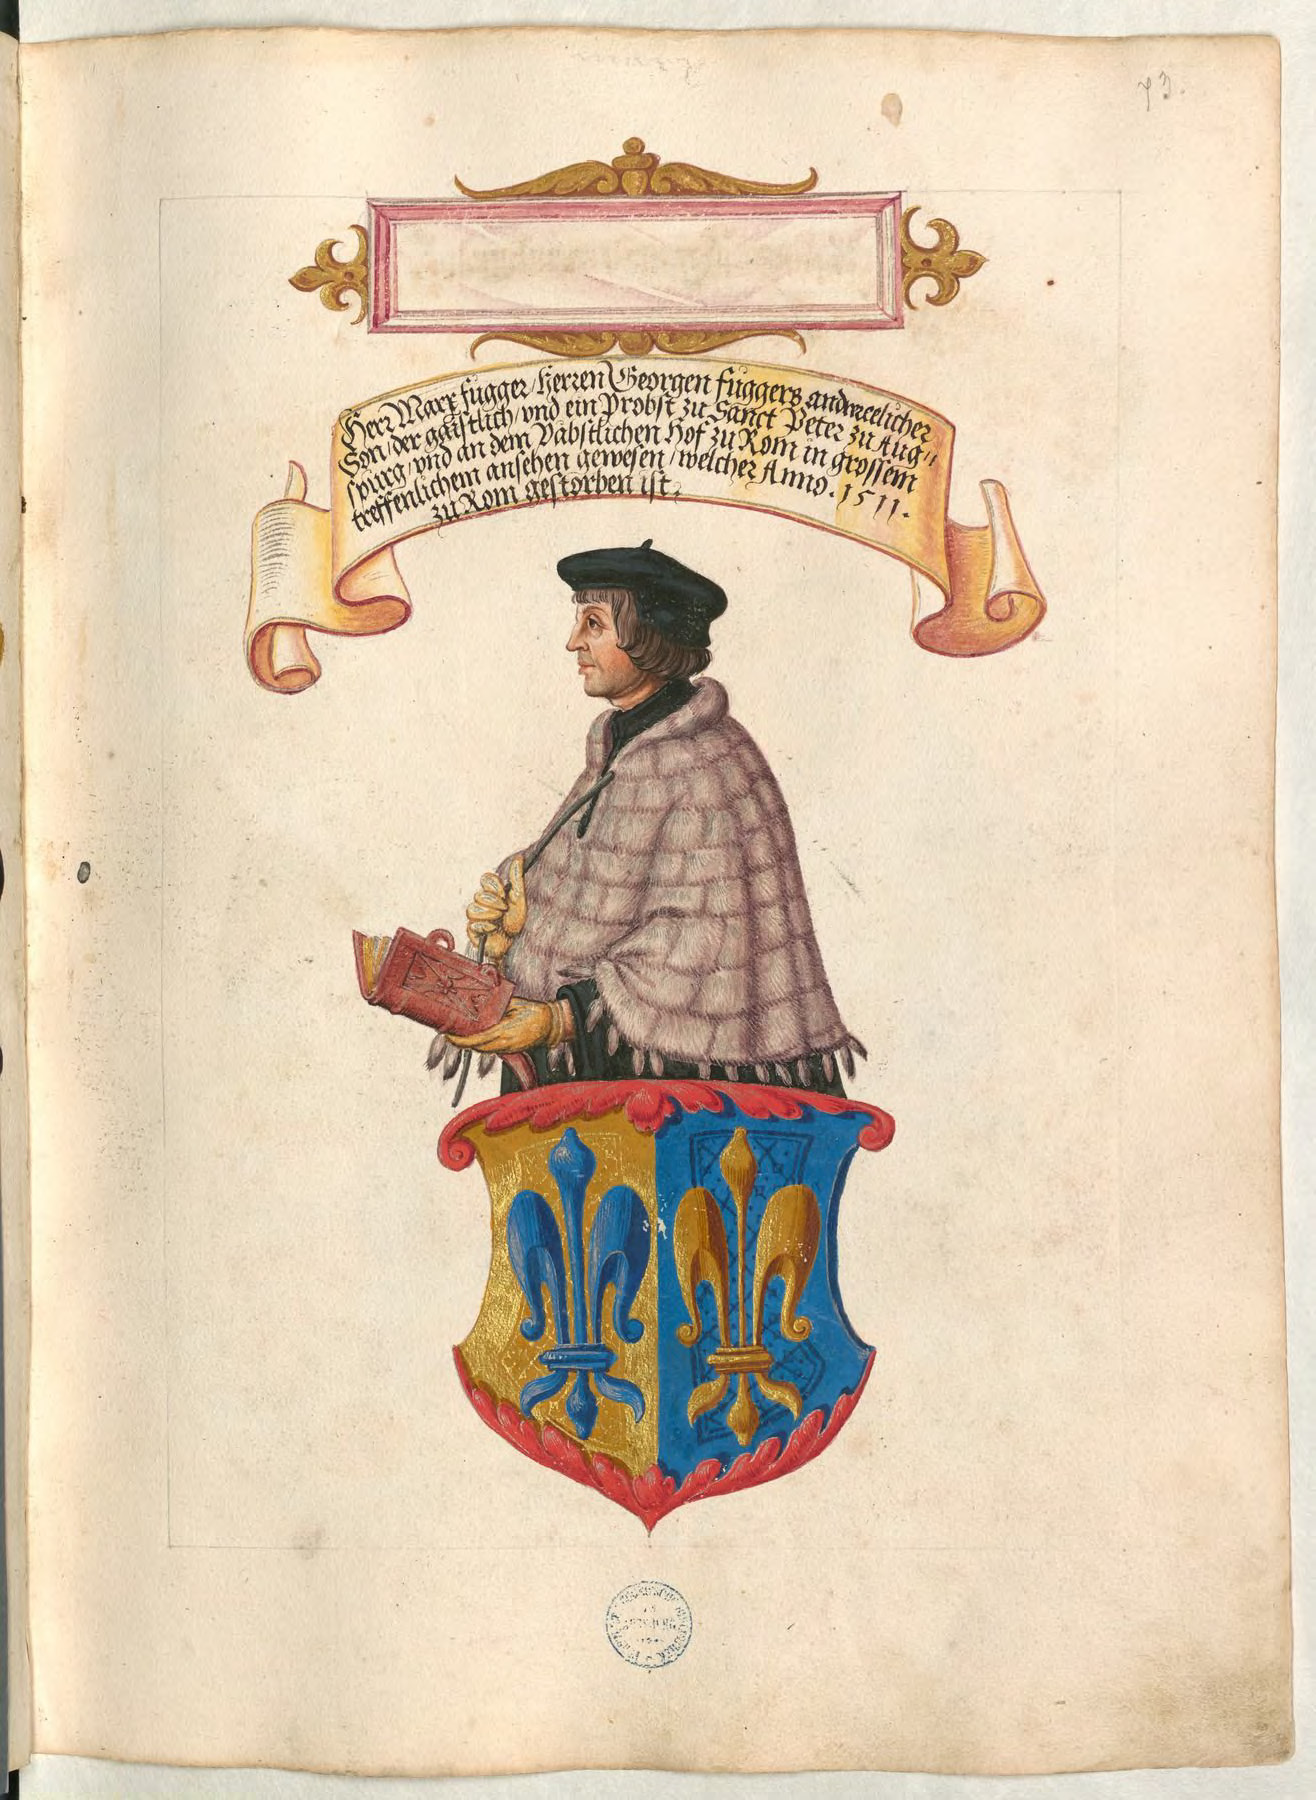 73.
Herr Marx fugger / Herren Georgen fuggers andereelicher
Son / der gaistlich / vnd ein Probst zu Sanct Peter zu Aug⸗
spurg / vnd an dem Väbstlichen Hof zu Rom in grossem
treffenlichem ansehen gewesen / welcher Anno. 1511.
zu Rom gestorben ist.